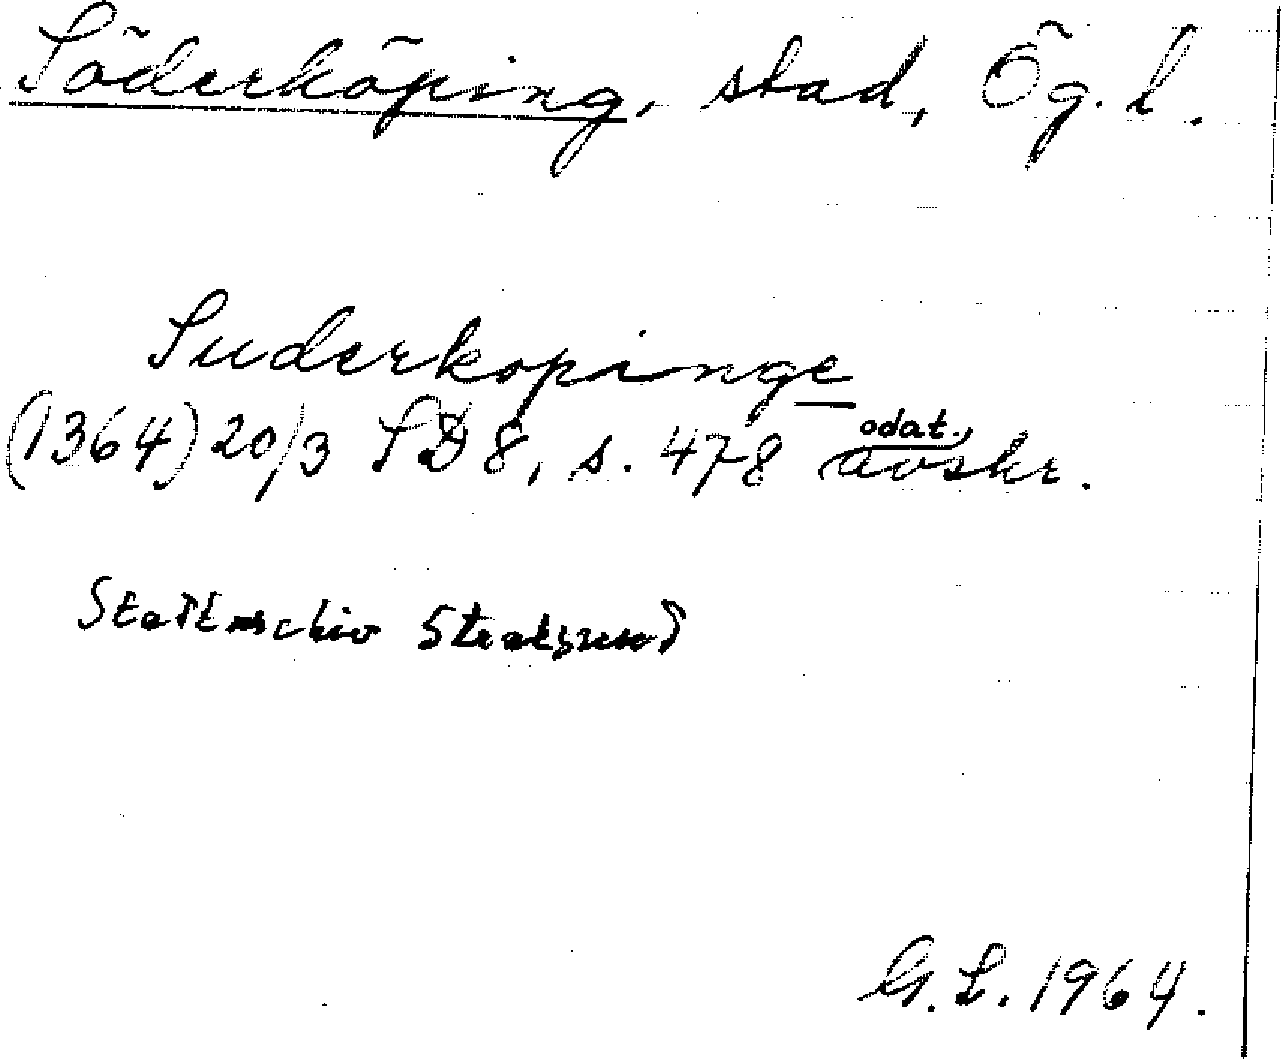 Söderköping, stad, Ög. l.
Suderkopinge
(1364) 20/3 SD 8, s. 478 odat., avskr.
Stadtarchiv Stralsund
G. L. 1964.